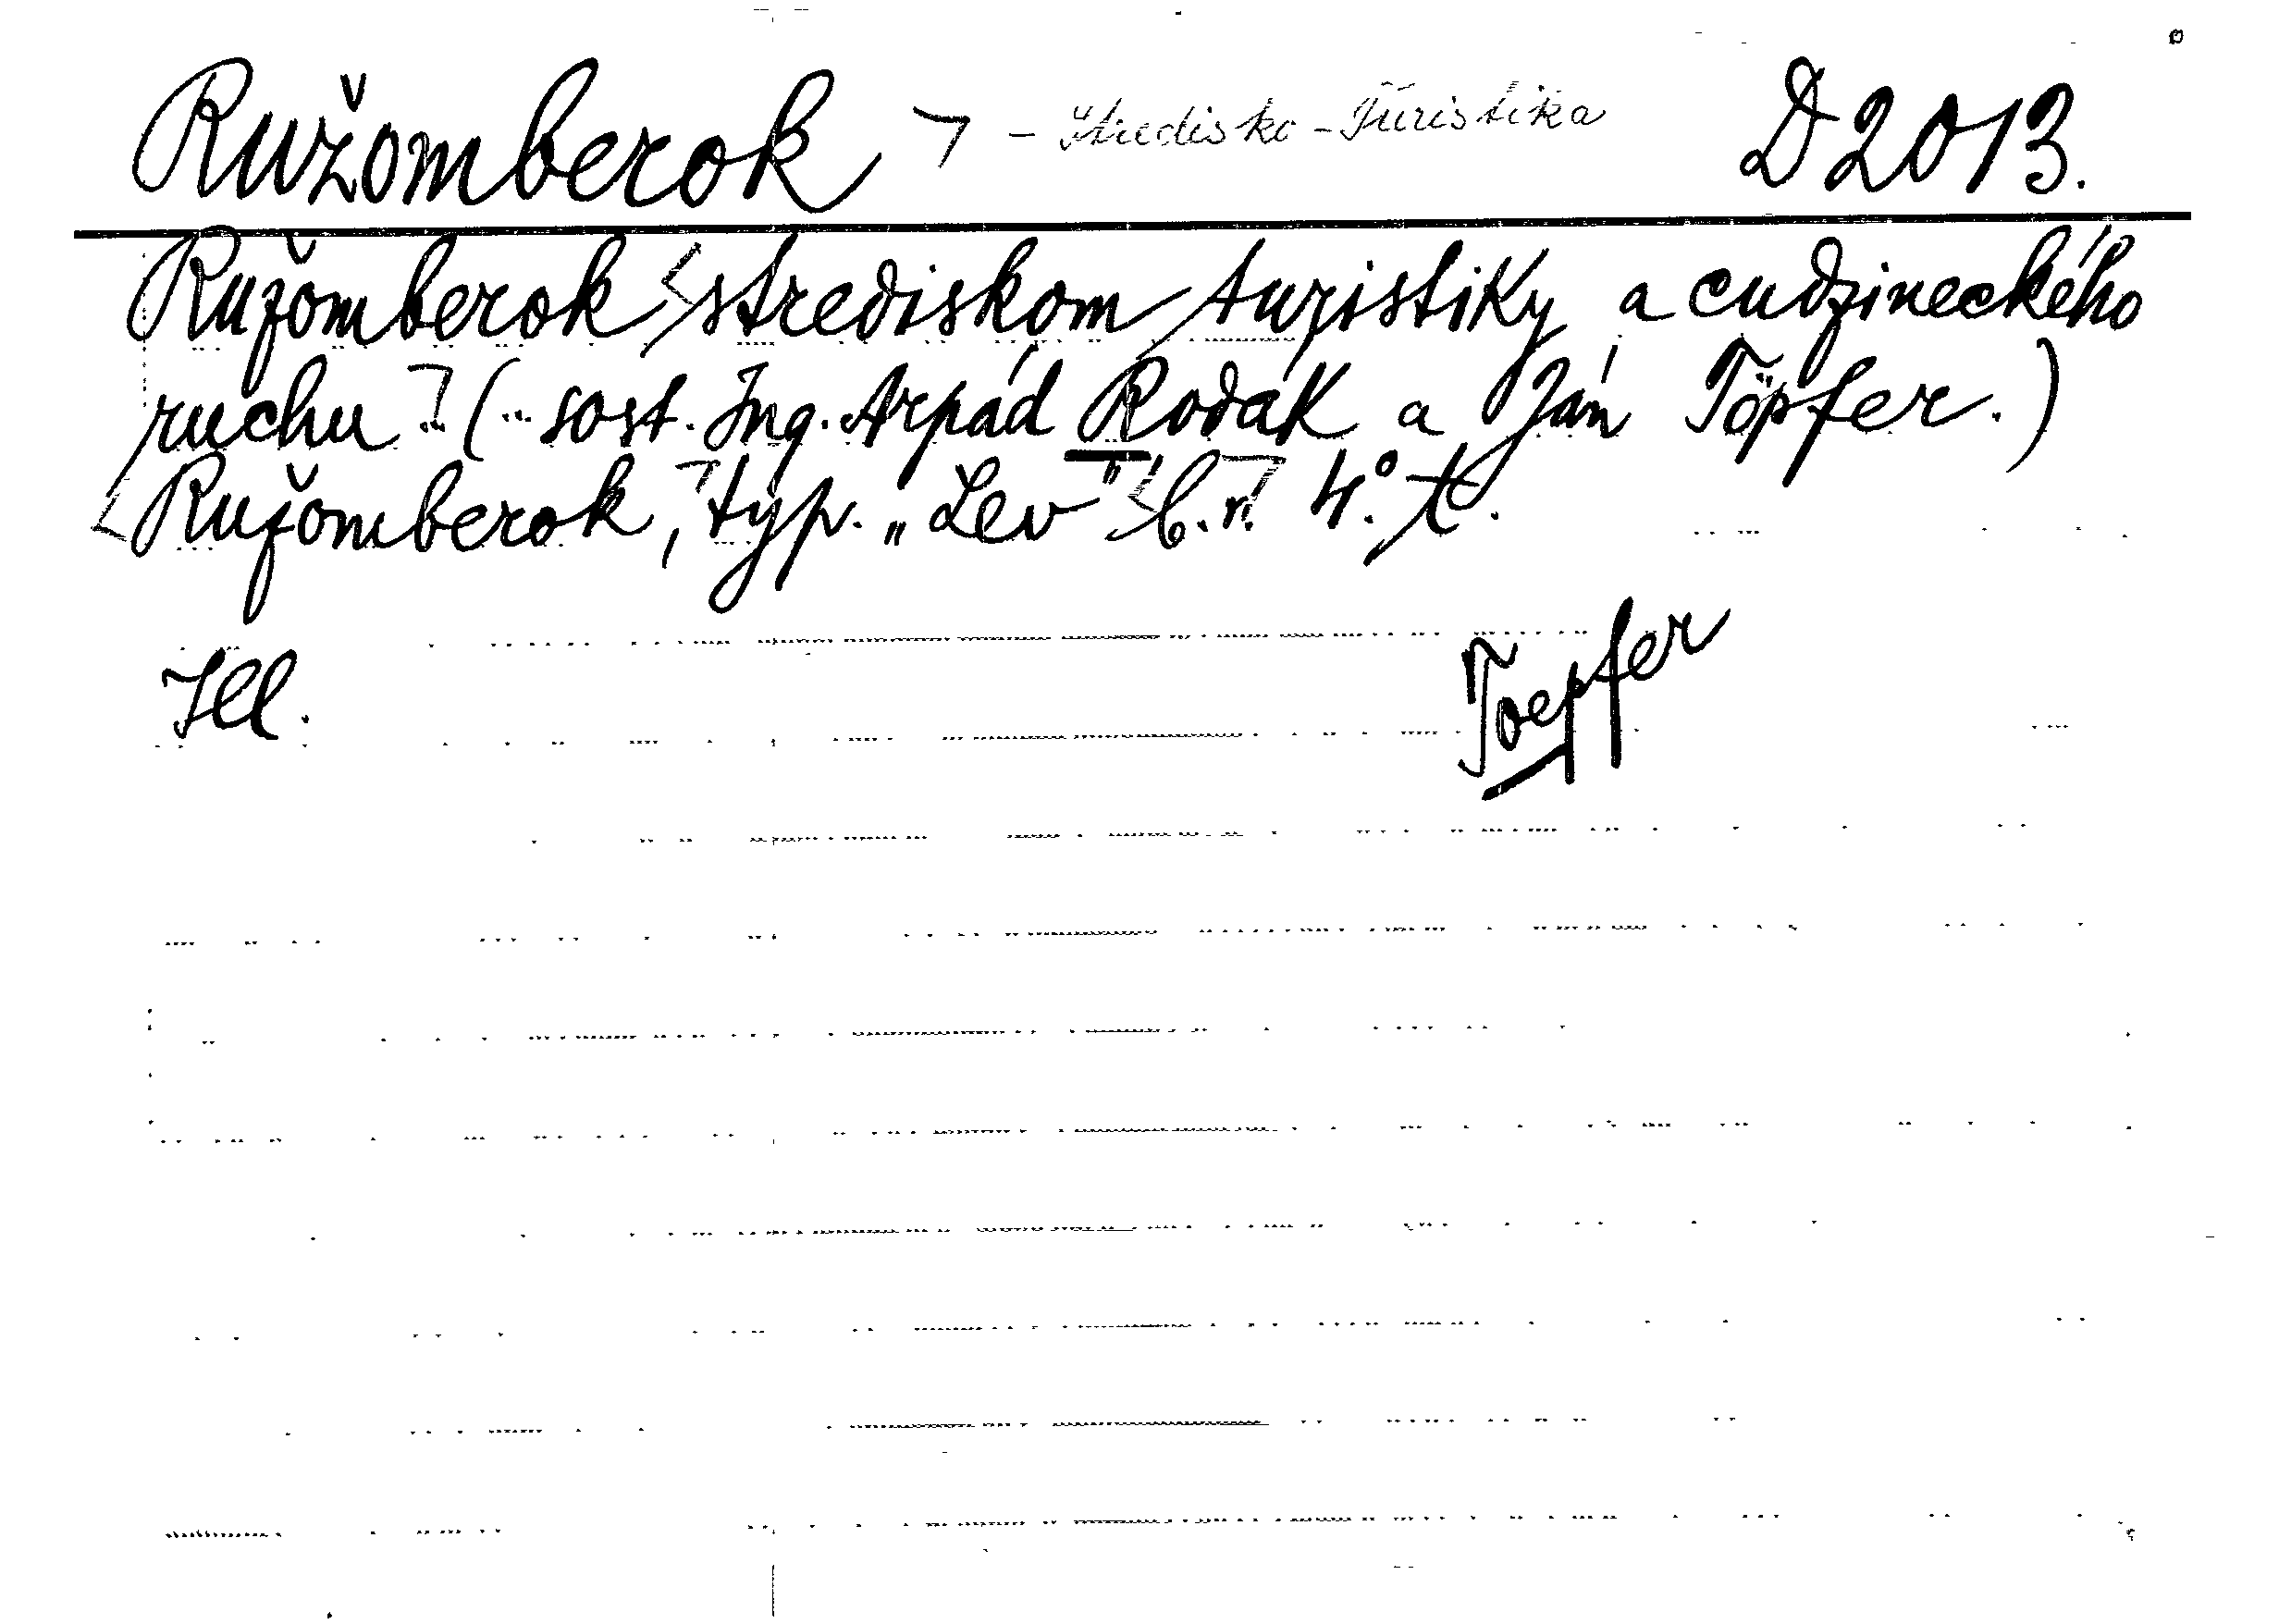 Ružomberok - Stredisko - Turistika D 2013.
Ružomberok strediskom turistiky a cudzineckého
ruchu. (.. sost. Ing. Arpád Rodák a Ján Töpfer.)
Ružomberok, typ. „Lev" b.r. 4°. t.
Ill. Toepfer